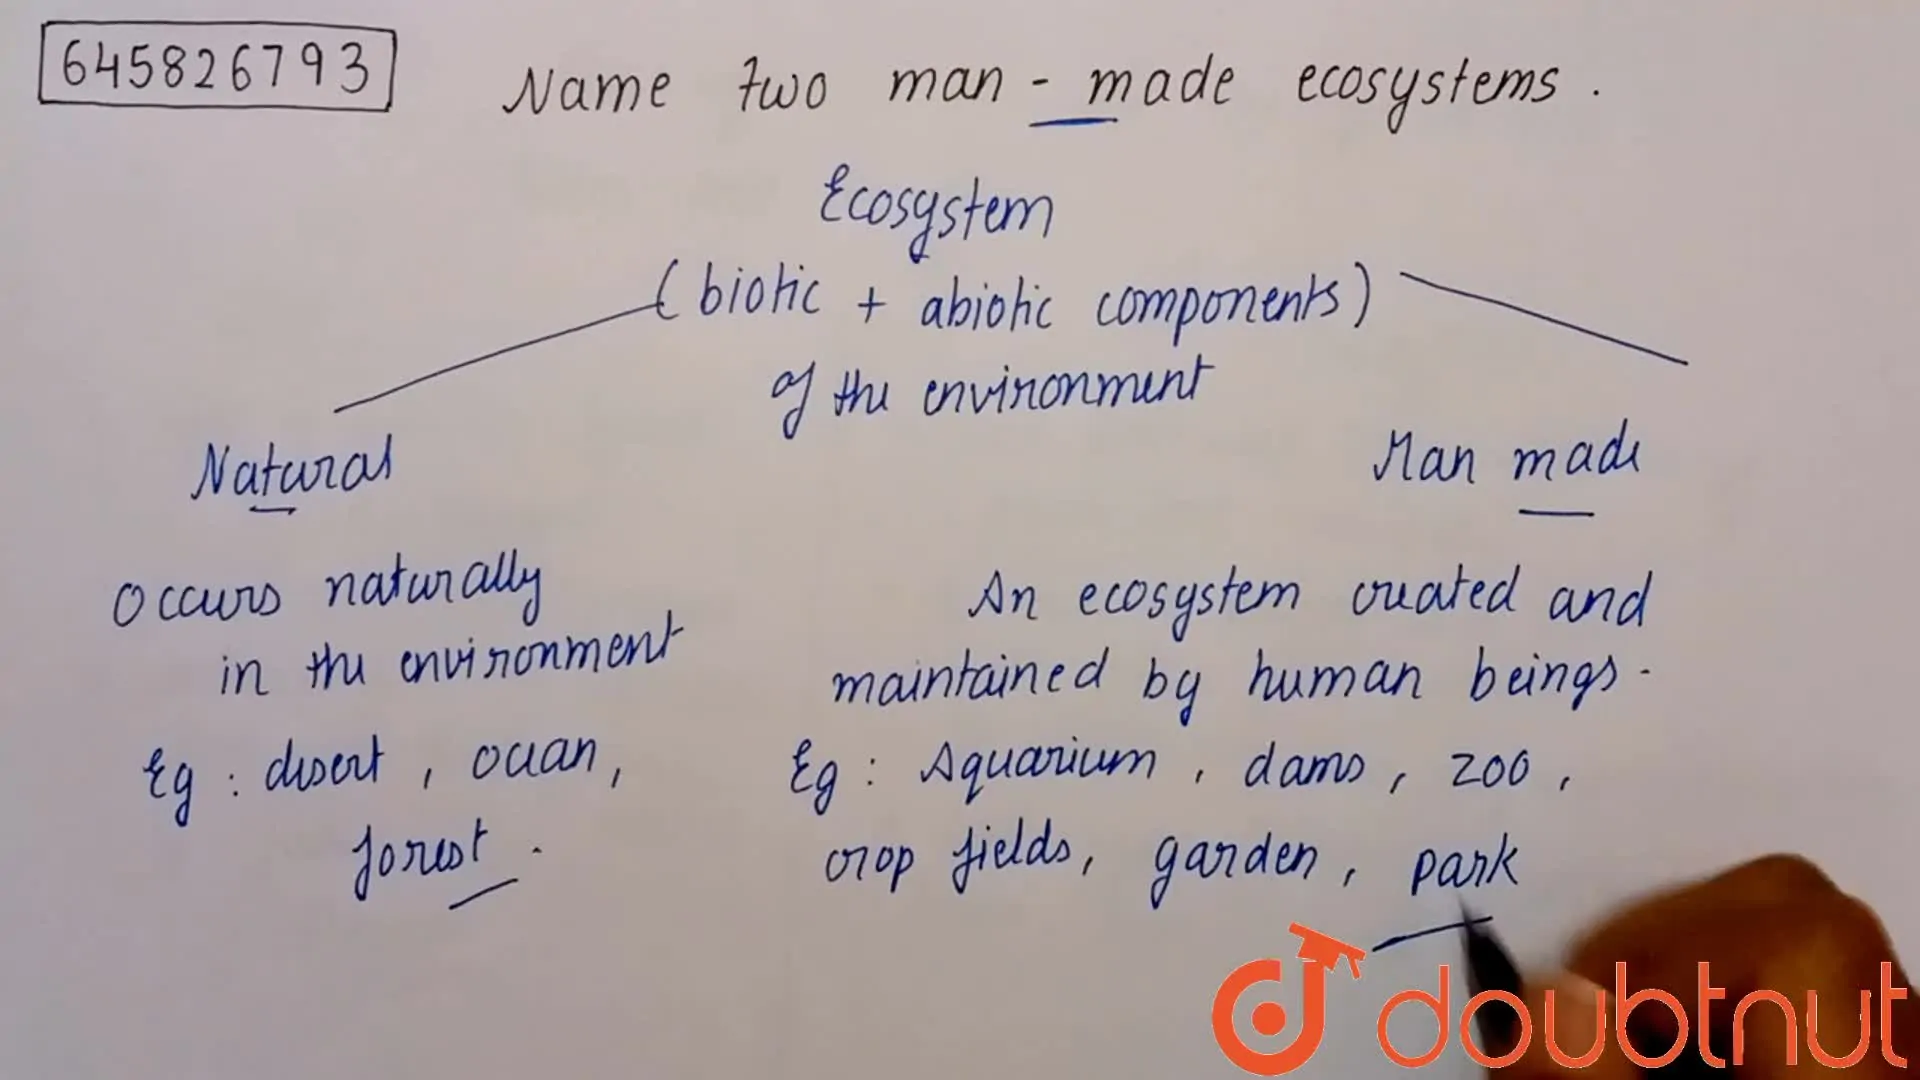 645826793
Name two man-made ecosystems.
Ecosystem
(biotic + abiotic components)
of the environment
Natural
Man made
Occurs naturally
in the environment
Eg : desert, ocean,
forest.
An ecosystem created and
maintained by human beings.
Eg : Aquarium, dams, zoo,
crop fields, garden, park
doubtnut